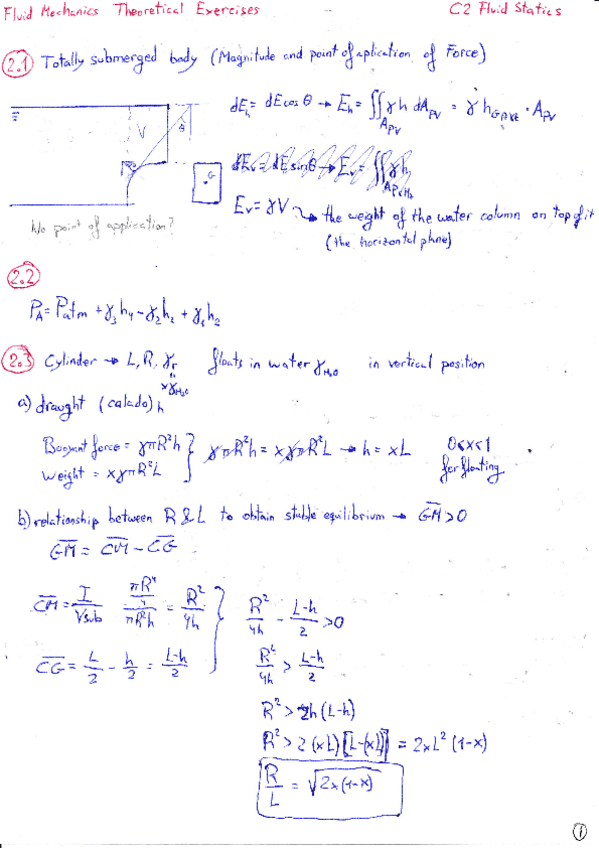 Fluid Mechanics Theoretical Exercises C2 Fluid Statics
2.1 Totally submerged body (Magnitude and point of aplication of Force)
dEh = dE cos θ → Eh = ∬APV γh dAPV = γ hGPVE · APV
V
θ
G
dEv = dE sin θ → Ev = ∬ γh
Ev = γV → the weight of the water column on top of it
(the horizontal plane)
No point of application?
2.2
PA = Patm + γ3h4 - γ2h2 + γ1h2
2.3 Cylinder → L, R, γr floats in water γH2O in vertical position
= xγH2O
a) draught (calado) h
Buoyant force = γπR²h } γπR²h = xγπR²L → h = xL 0<x<1
Weight = xγπR²L for floating
b) relationship between R & L to obtain stable equilibrium → GM > 0
GM = CM - CG
CM = I/Vsub = (πR⁴/4)/(πR²h) = R²/4h
R²/4h - (L-h)/2 > 0
CG = L/2 - h/2 = (L-h)/2
R²/4h > (L-h)/2
R² > 2h(L-h)
R² > 2(xL)[L-(xL)] = 2xL²(1-x)
R/L = √2x(1-x)
1